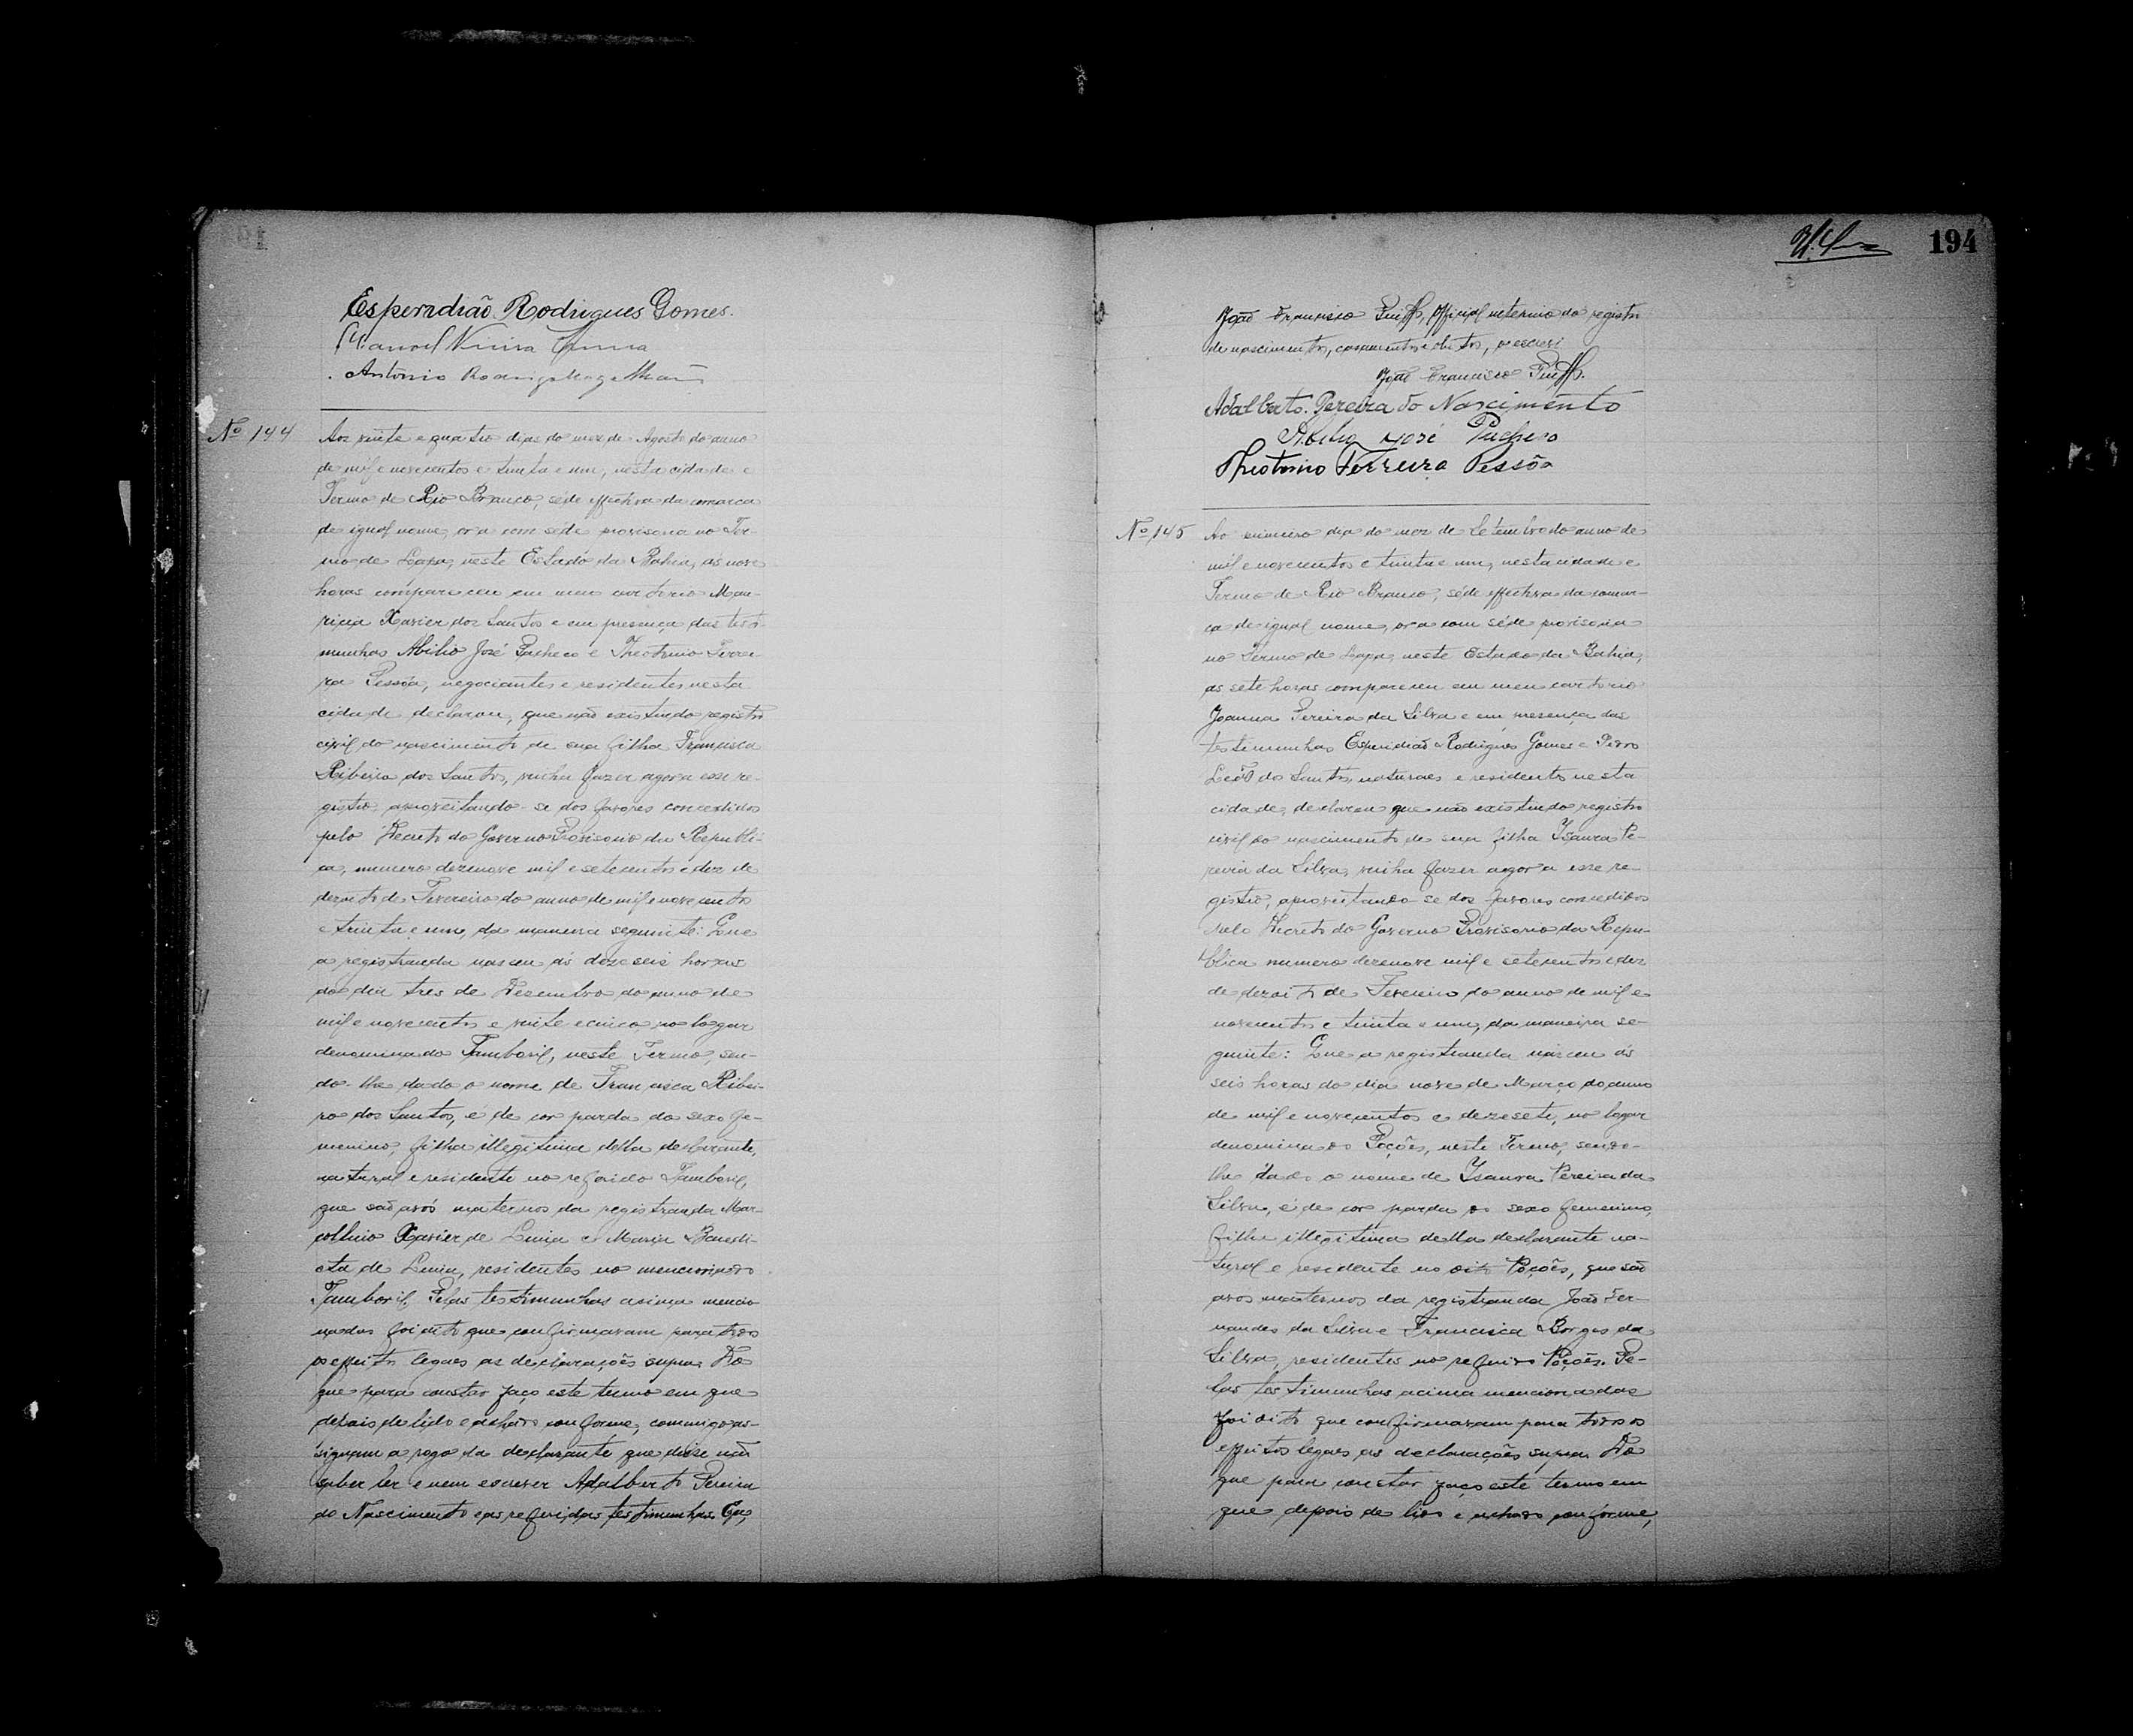 194
Esperidião Rodrigues Gomes.
Manoel Vieira
Antonio Magalhães
Nº 144
Aos vinte e quatro dias do mez de Agosto do anno
de mil e novecentos e trinta e um, nesta cidade e
Termo de Rio Branco, séde effectiva da comarca
de igual nome, ora com séde provisoria no Ter-
mo de Lapa, neste Estado da Bahia, ás nove
horas compareceu em meu cartorio Mau-
ricia Xavier dos Santos e em presença das teste-
munhas Abilio José Pacheco e Theotonio Ferrei-
ra Pessôa, negociantes e residentes nesta
cidade declarou, que não existindo registro
civil do nascimento de sua filha Francisca
Ribeiro dos Santos, vinha fazer agora esse re-
gistro, aproveitando-se dos favores concedidos
pelo Decreto do Governo Provisorio da Republi-
ca, numero dezenove mil e setecentos e dez de
dezoito de Fevereiro do anno de mil e novecentos
e trinta e um, da maneira seguinte: Que
a registranda nasceu ás dezeseis horas
do dia tres de Dezembro do anno de
mil e novecentos e vinte e cinco no logar
denominado Tamboril, neste Termo, sen-
do-lhe dado o nome de Francisca Ribei-
ro dos Santos, é de cor parda do sexo fe-
menino, filha illegitima della declarante,
natural e residente no referido Tamboril,
que são avós maternos da registranda Mar-
collino Xavier de e Maria Benedi-
cta de residentes no mencionado
Tamboril. Pelas testimunhas acima mencio-
nadas foi dito que confirmavam para todos
os effeitos legaes as declarações supra. Do
que para constar faço este termo em que
depois de lido e achado conforme, commigo as-
signam a rogo da declarante que disse não
saber ler e nem escrever Adalberto Pereira
do Nascimento e as referidas testimunhas. Eu,
194
João Francisco official interino do registro
de nascimentos, casamentos e obitos, o escrevi
João Francisco
Adalberto Pereira do Nascimento
Abilio José Pacheco
Theotonio Ferreira Pessôa
Nº 145
Ao primeiro dia do mez de Setembro do anno de
mil e novecentos e trinta e um, nesta cidade e
Termo de Rio Branco, séde effectiva da comar-
ca de igual nome, ora com séde provisoria
no Termo de Lapa, neste Estado da Bahia,
as sete horas compareceu em meu cartorio
Joanna Pereira da Silva e em presença das
testimunhas Esperidião Rodrigues Gomes e Pedro
Leão dos Santos, naturaes e residentes nesta
cidade, declarou que não existindo registro
civil do nascimento de sua filha Ysaura Pe-
reira da Silva, vinha fazer agora esse re-
gistro, aproveitando-se dos favores concedidos
pelo Decreto do Governo Provisorio da Repu-
blica numero dezenove mil e setecentos e dez
de dezoito de Fevereiro do anno de mil e
novecentos e trinta e um, da maneira se-
guinte: Que a registranda nasceu ás
seis horas do dia nove de Março do anno
de mil e novecentos e dezesete, no logar
denominado Poções, neste Termo, sendo-
lhe dado o nome de Ysaura Pereira da
Silva, é de cor parda do sexo femenino,
filha illegitima della declarante na-
tural e residente no dito Poções, que são
avos maternos da registranda João Fer-
nandes da Silva e Francisca Borges da
Silva, residentes no referido Poções. Pe-
las testimunhas acima mencionadas
foi dito que confirmavam para todos os
effeitos legaes as declarações supra. Do
que para constar faço este termo em
que depois de lido e achado conforme,